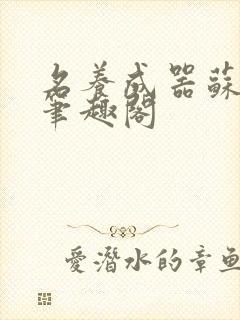 名養成器蘇
筆趣閣
愛潛水的章魚